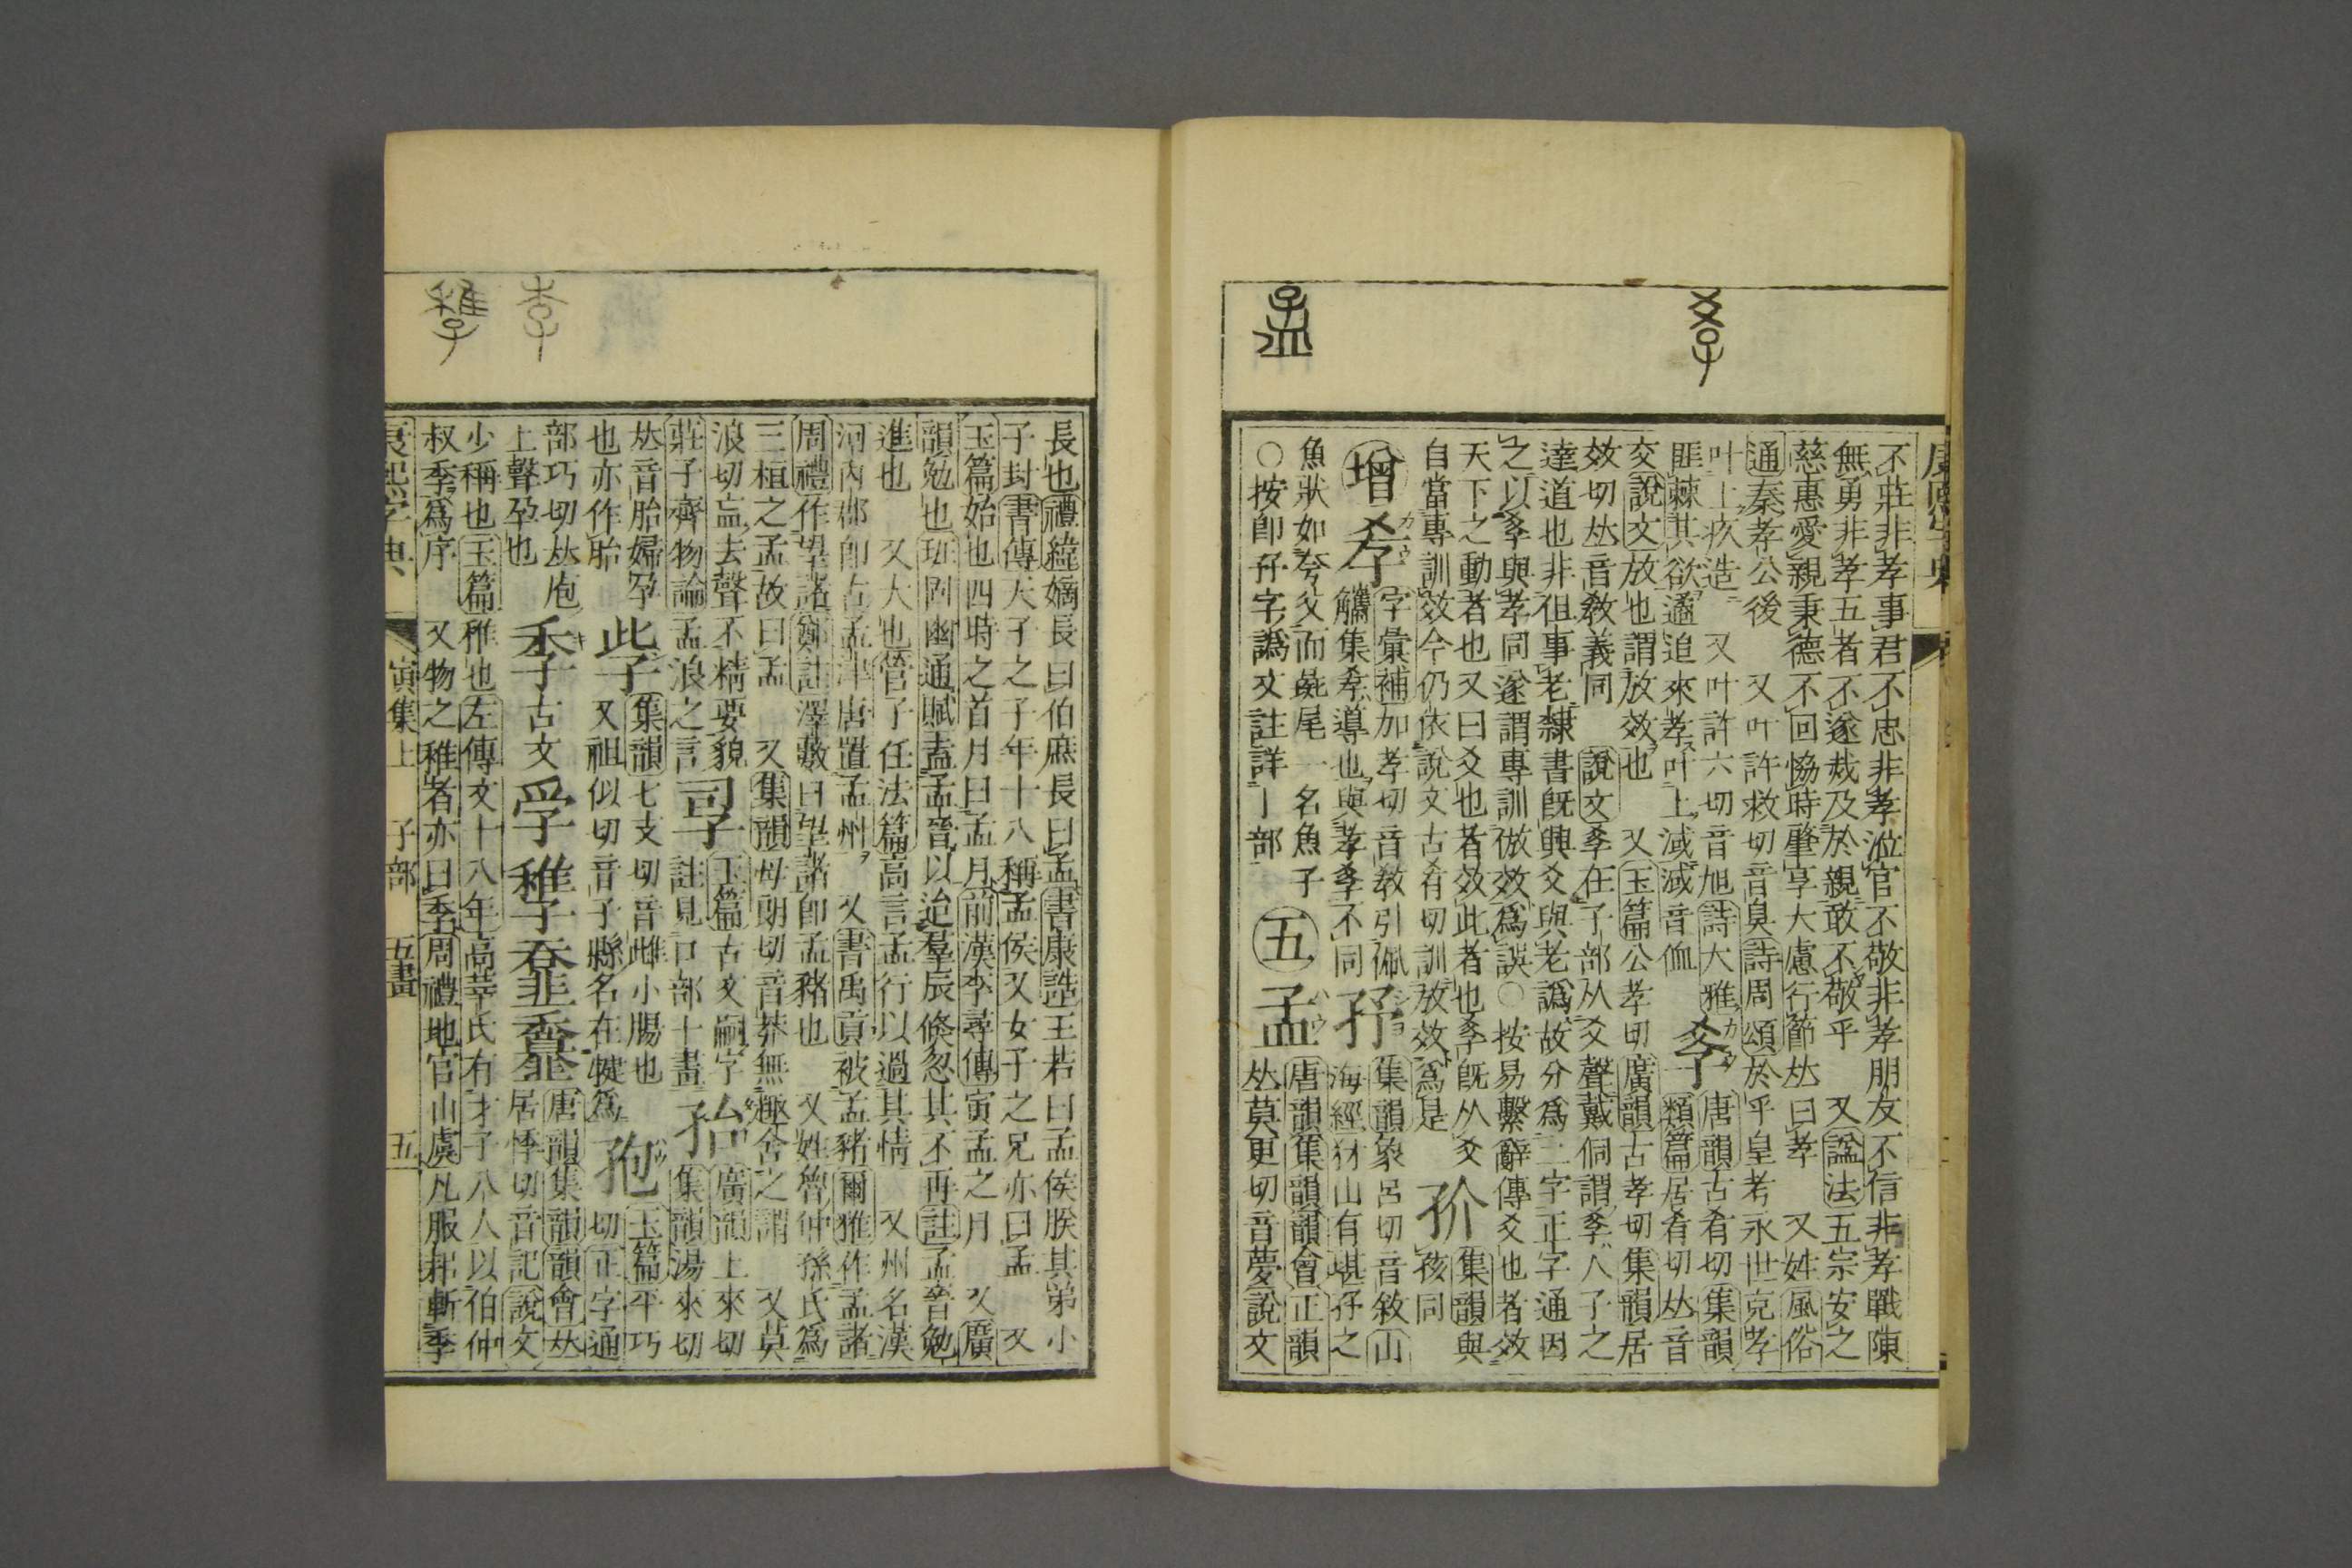 康熙字典
不莊非孝事君不忠非孝涖官不敬非孝朋友不信非孝戰陳
無勇非孝五者不遂烖及於親敢不敬乎 又諡法五宗安之
慈惠愛親秉德不回協時肇享大慮行節𠀤曰孝 又姓風俗
通秦孝公後 又叶許救切音臭詩周頌於乎皇考永世克孝
叶上疚造 又叶許六切音旭詩大雅
匪棘其欲遹追來孝叶上淢淢音侐
𡥈 唐韻古肴切集韻
類篇居肴切𠀤音
交說文放也謂放效也 又玉篇公孝切廣韻古孝切集韻居
效切𠀤音敎義同 說文𡥈在子部从爻聲戴侗謂𡥈人子之
達道也非但事老隸書旣興爻與老譌故分爲二字正字通因
之以𡥈與孝同遂謂專訓倣效爲誤○按易繫辭傳爻也者效
天下之動者也又曰爻也者效此者也𡥈旣从爻
自當專訓效今仍依說文古肴切訓放效爲是
集韻與
孩同
增 𡥉 字彙補加孝切音敎引佩
觿集𡥉導也與孝𡥈不同
集韻象呂切音敘山
海經犲山有堪㜿之
魚狀如夸父而彘尾一名魚子
○按卽㜿字譌文註詳亅部
五 孟 唐韻集韻韻會正韻
𠀤莫更切音夢說文
長也禮緯嫡長曰伯庶長曰孟書康誥王若曰孟侯朕其弟小
子封書傳天子之子年十八稱孟侯又女子之兄亦曰孟 又
玉篇始也四時之首月曰孟月前漢李尋傳寅孟之月 又廣
韻勉也班固幽通賦盍孟晉以迨羣辰倏忽其不再註孟晉勉
進也 又大也管子任法篇高言孟行以過其情 又州名漢
河內郡卽古孟津唐置孟州 又書禹貢被孟豬爾雅作孟諸
周禮作望諸鄭註澤藪曰望諸卽孟豬也 又姓魯仲孫氏爲
三桓之孟故曰孟 又集韻母朗切音莽無趣舍之謂 又莫
浪切𥁃去聲不精要貌
莊子齊物論孟浪之言
玉篇古文嗣字
註見口部十畫
孡 廣韻上來切
集韻湯來切
𠀤音胎婦孕
也亦作胎
集韻七支切音雌小腸也
又祖似切音子縣名在犍爲
孢 玉篇平巧
切正字通
部巧切𠀤庖
上聲孕也
季 古文 唐韻集韻韻會𠀤
居悸切音記說文
少稱也玉篇稚也左傳文十八年高莘氏有才子八人以伯仲
叔季爲序 又物之稚者亦曰季周禮地官山虞凡服耜斬季
康熙字典 寅集上 子部 五畫 五